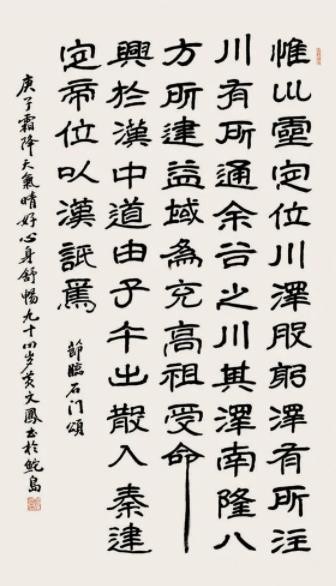 惟巛靈定位川澤股躬澤有所注
川有所通余谷之川其澤南隆八
方所達益域為充高祖受命
興於漢中道由子午出散入秦建
定帝位以漢詆焉
節臨石门頌
庚子霜降天氣晴好心身舒暢九十四岁黄文鳳书於鮀島